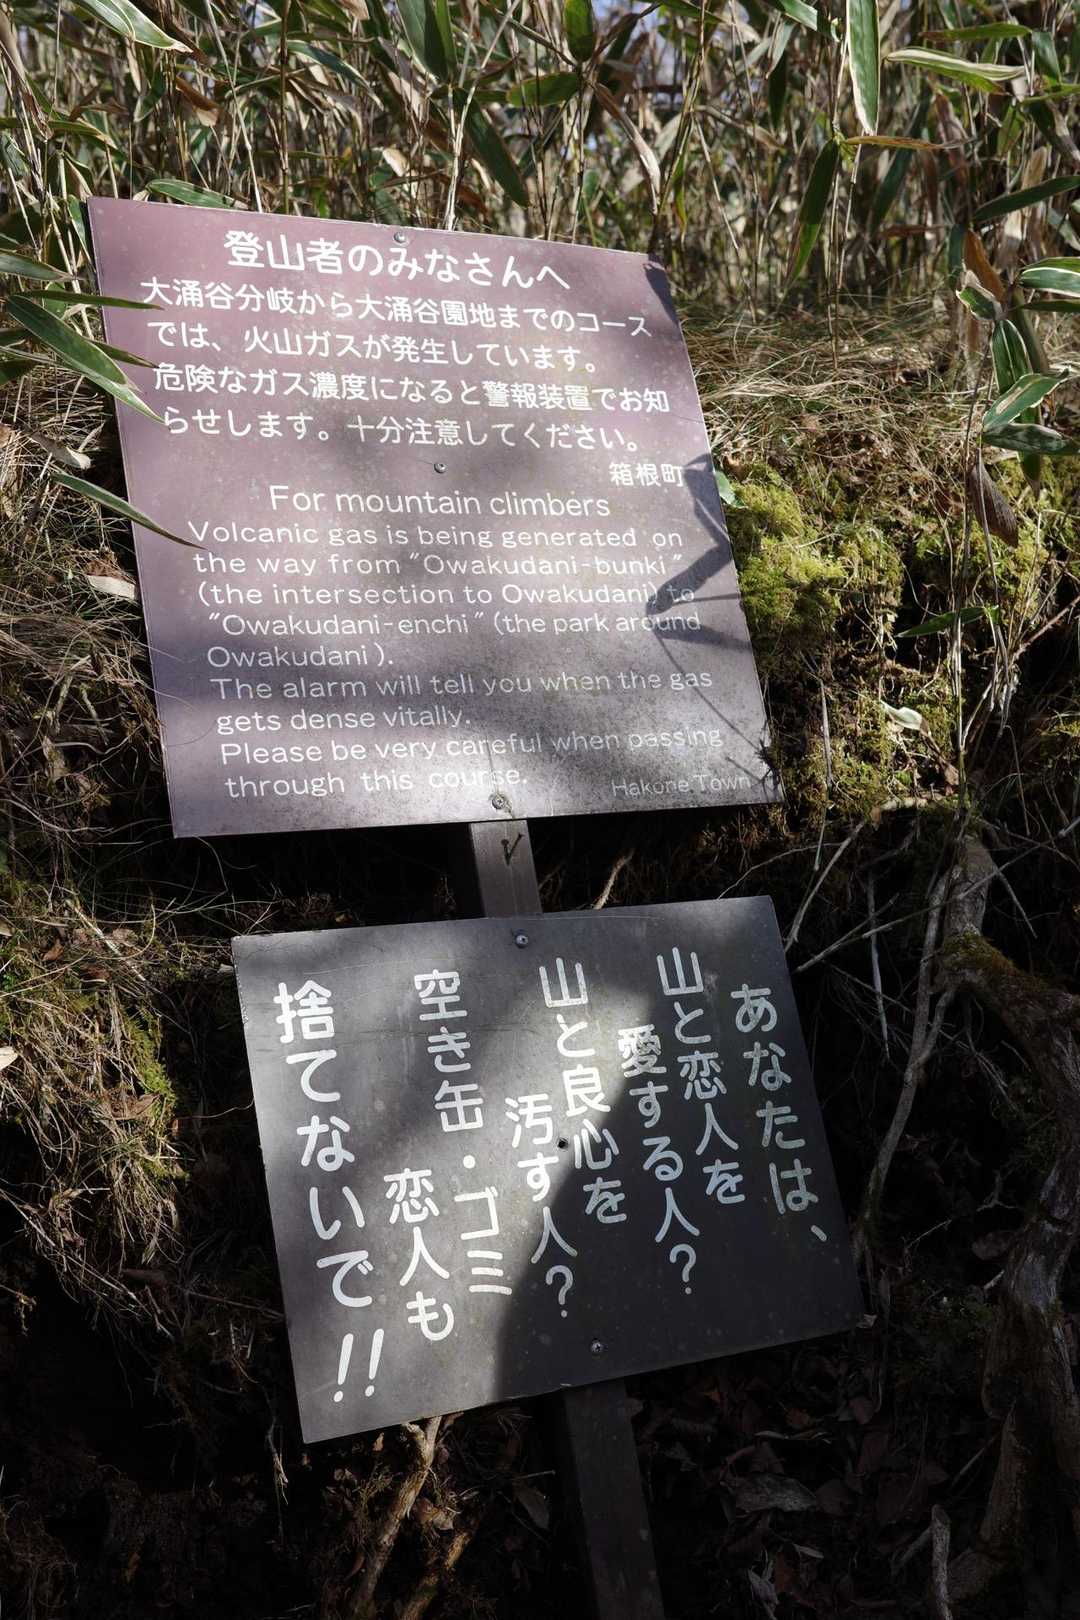 登山者のみなさんへ
大涌谷分岐から大涌谷園地までのコース
では、火山ガスが発生しています。
危険なガス濃度になると警報装置でお知
らせします。十分注意してください。
箱根町
For mountain climbers
Volcanic gas is being generated on
the way from "Owakudani-bunki"
(the intersection to Owakudani) to
"Owakudani-enchi" (the park around
Owakudani).
The alarm will tell you when the gas
gets dense vitally.
Please be very careful when passing
through this course.
Hakone Town
あなたは、
山と恋人を
愛する人?
山と良心を
汚す人?
空き缶・ゴミ
恋人も
捨てないで!!